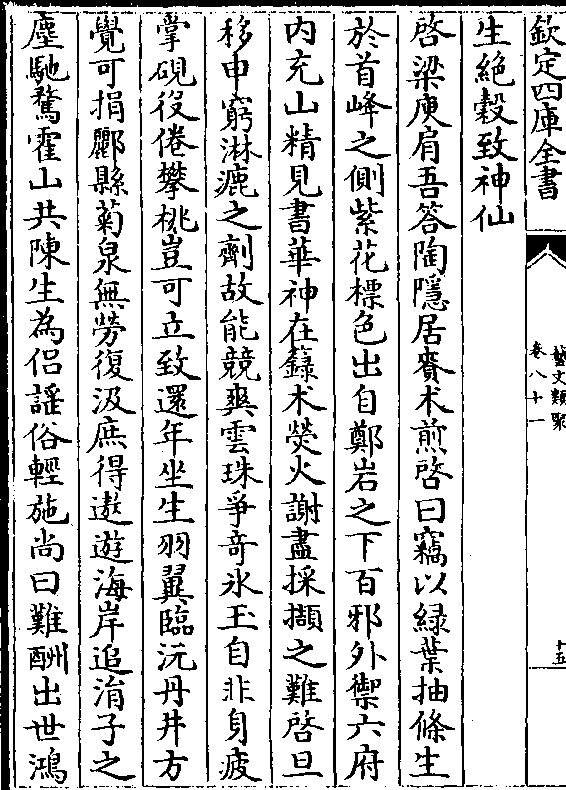 欽定四庫全書
藝文類聚
卷八十一
十五
生絶穀致神仙
啓梁庾肩吾答陶隱居賚术煎啓曰竊以緑葉抽條生
於首峰之側紫花標色出自鄭岩之下百邪外禦六府
内充山精見書華神在籙木熒火謝盡採擷之難啓旦
移申窮淋漉之劑故能競爽雲珠爭奇氷玉自非身疲
掌硯役倦攀桃豈可立致還年坐生羽翼臨沅丹井方
覺可捐酈縣菊泉無勞復汲庶得遨遊海岸追涓子之
塵馳騖霍山共陳生為侶謡俗輕施尚曰難酬出世鴻